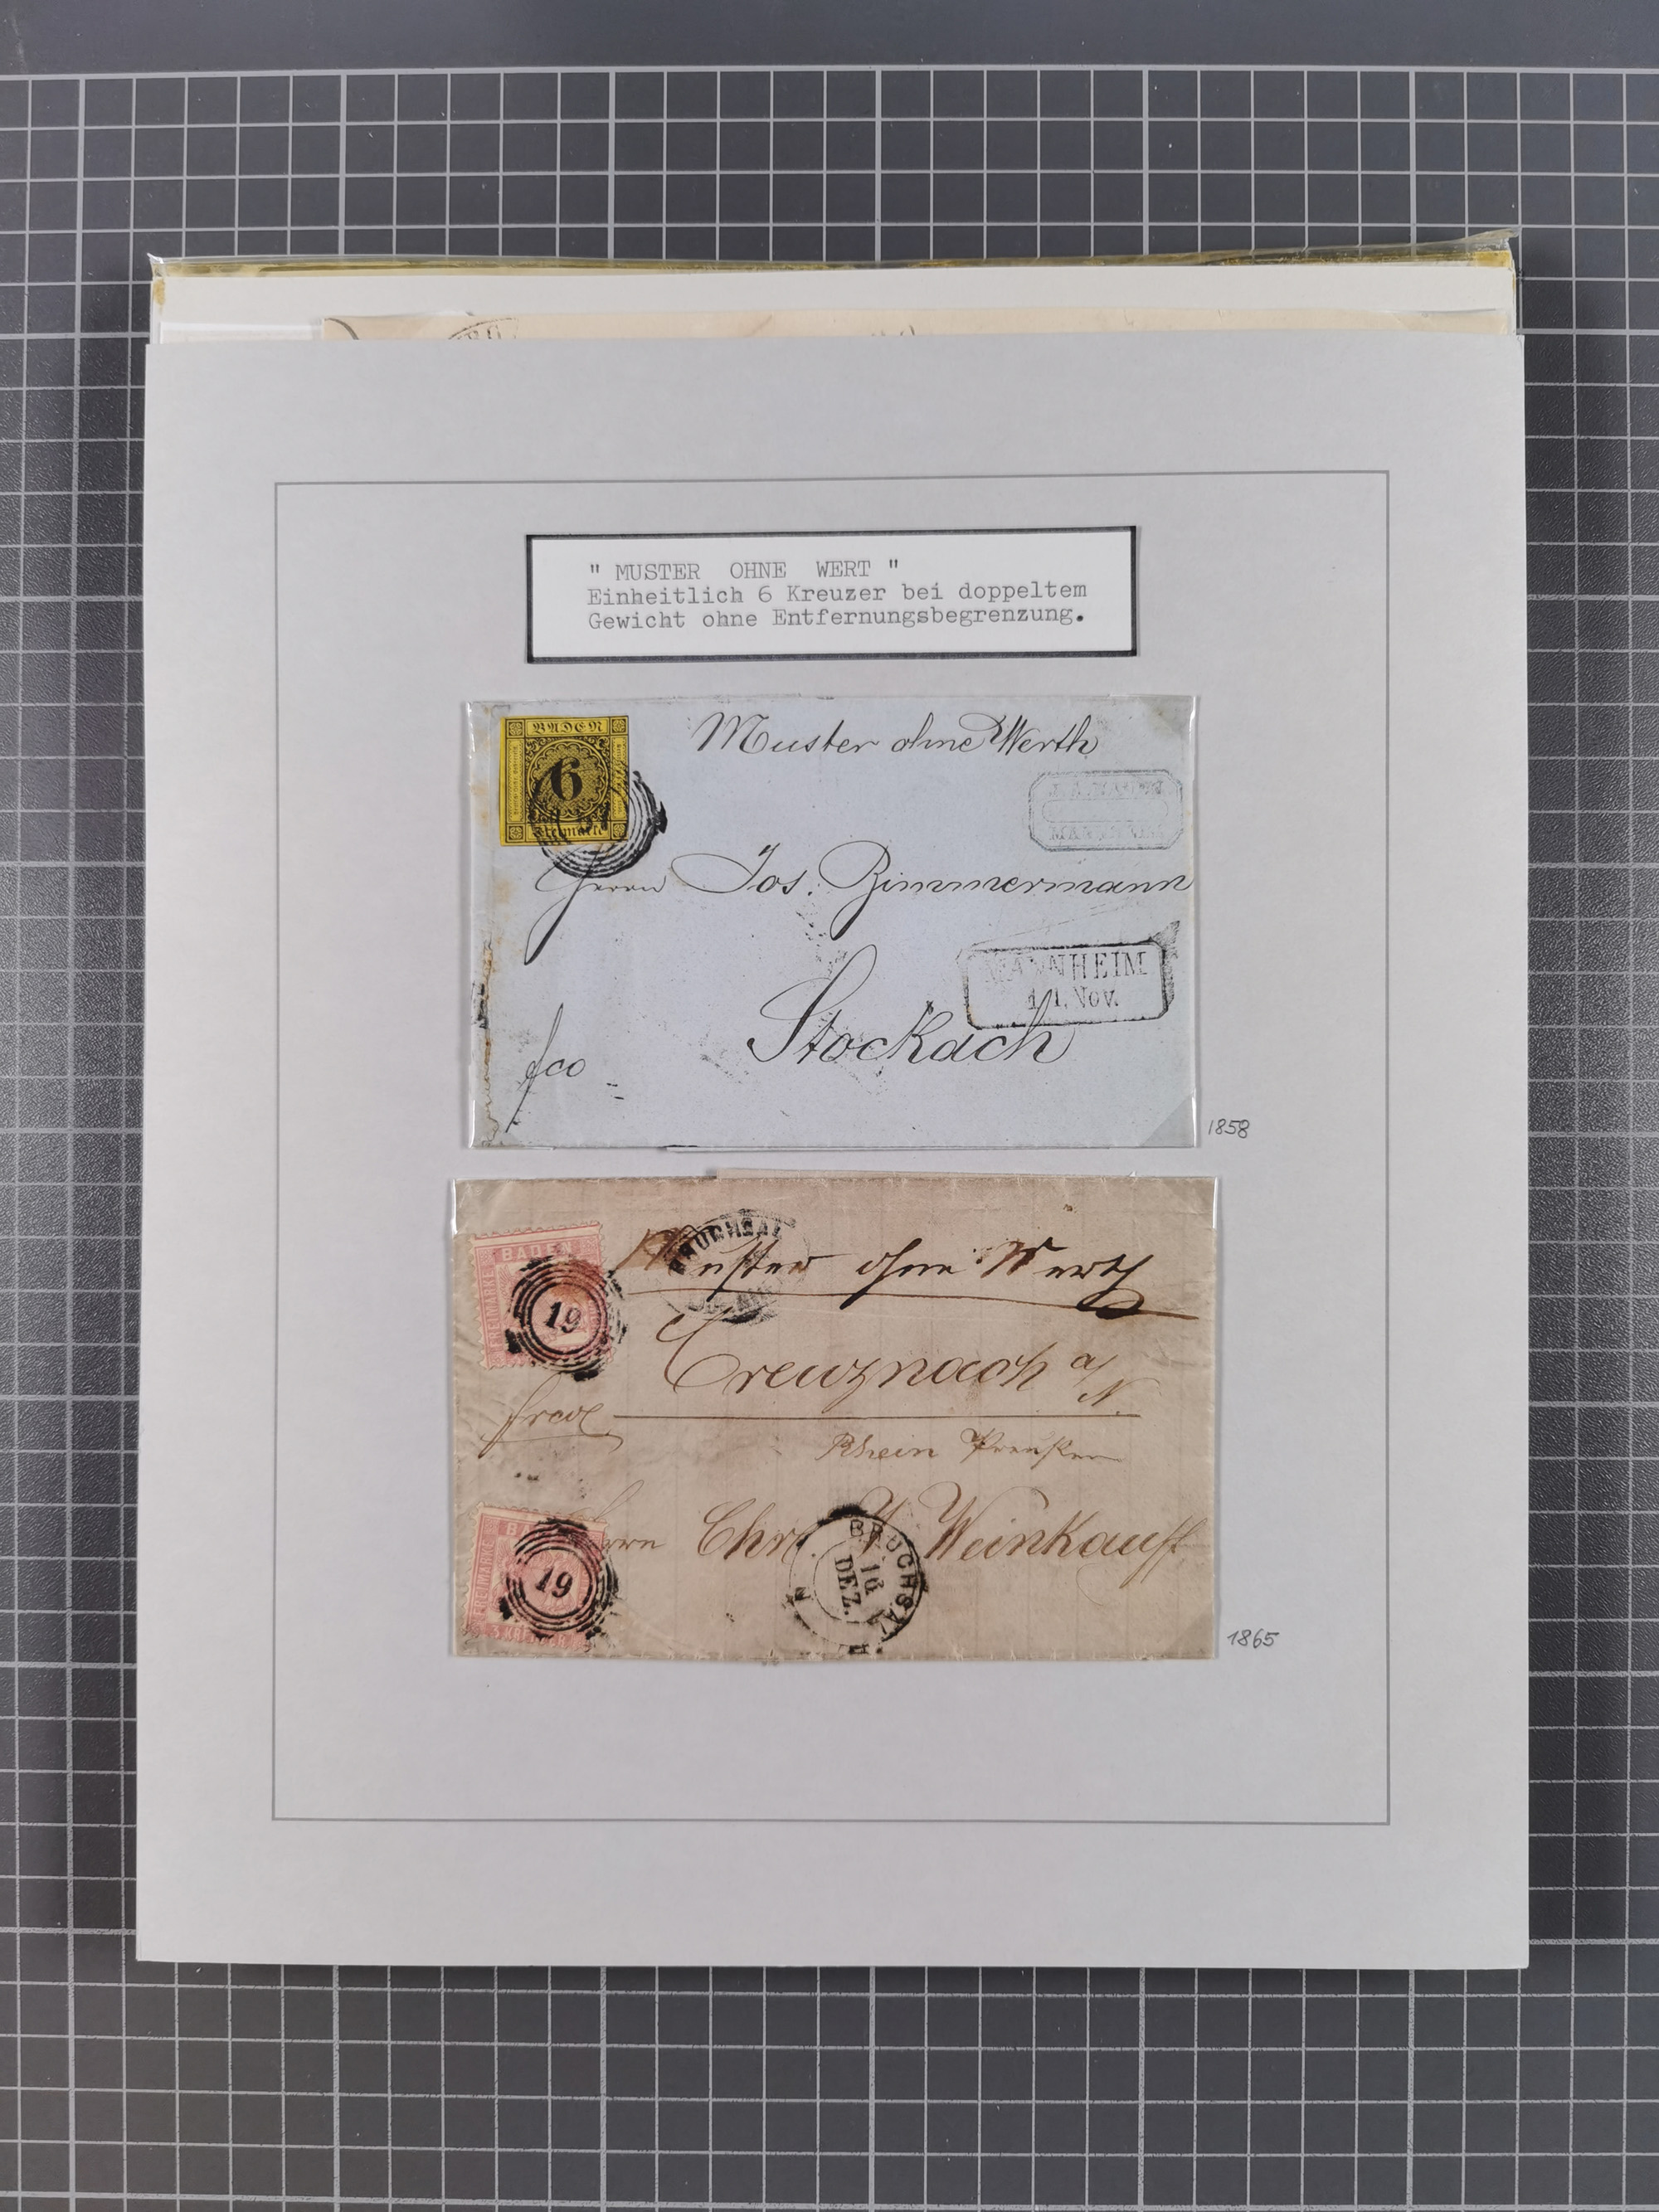 " MUSTER OHNE WERT "
Einheitlich 6 Kreuzer bei doppeltem
Gewicht ohne Entfernungsbegrenzung.
BADEN
6
Freimarke
Muster ohne Werth
Herrn Jos. Zimmermann
MANNHEIM
11. Nov.
Stockach
fco
1858
BADEN
FREIMARKE
19
BRUCHSAL
Muster ohne Werth
Creuznach a/N.
Rhein Preußen
Herrn Chr. Weinkauff
FREIMARKE
3 KREUZER
19
BRUCHSAL
16
DEZ.
1865